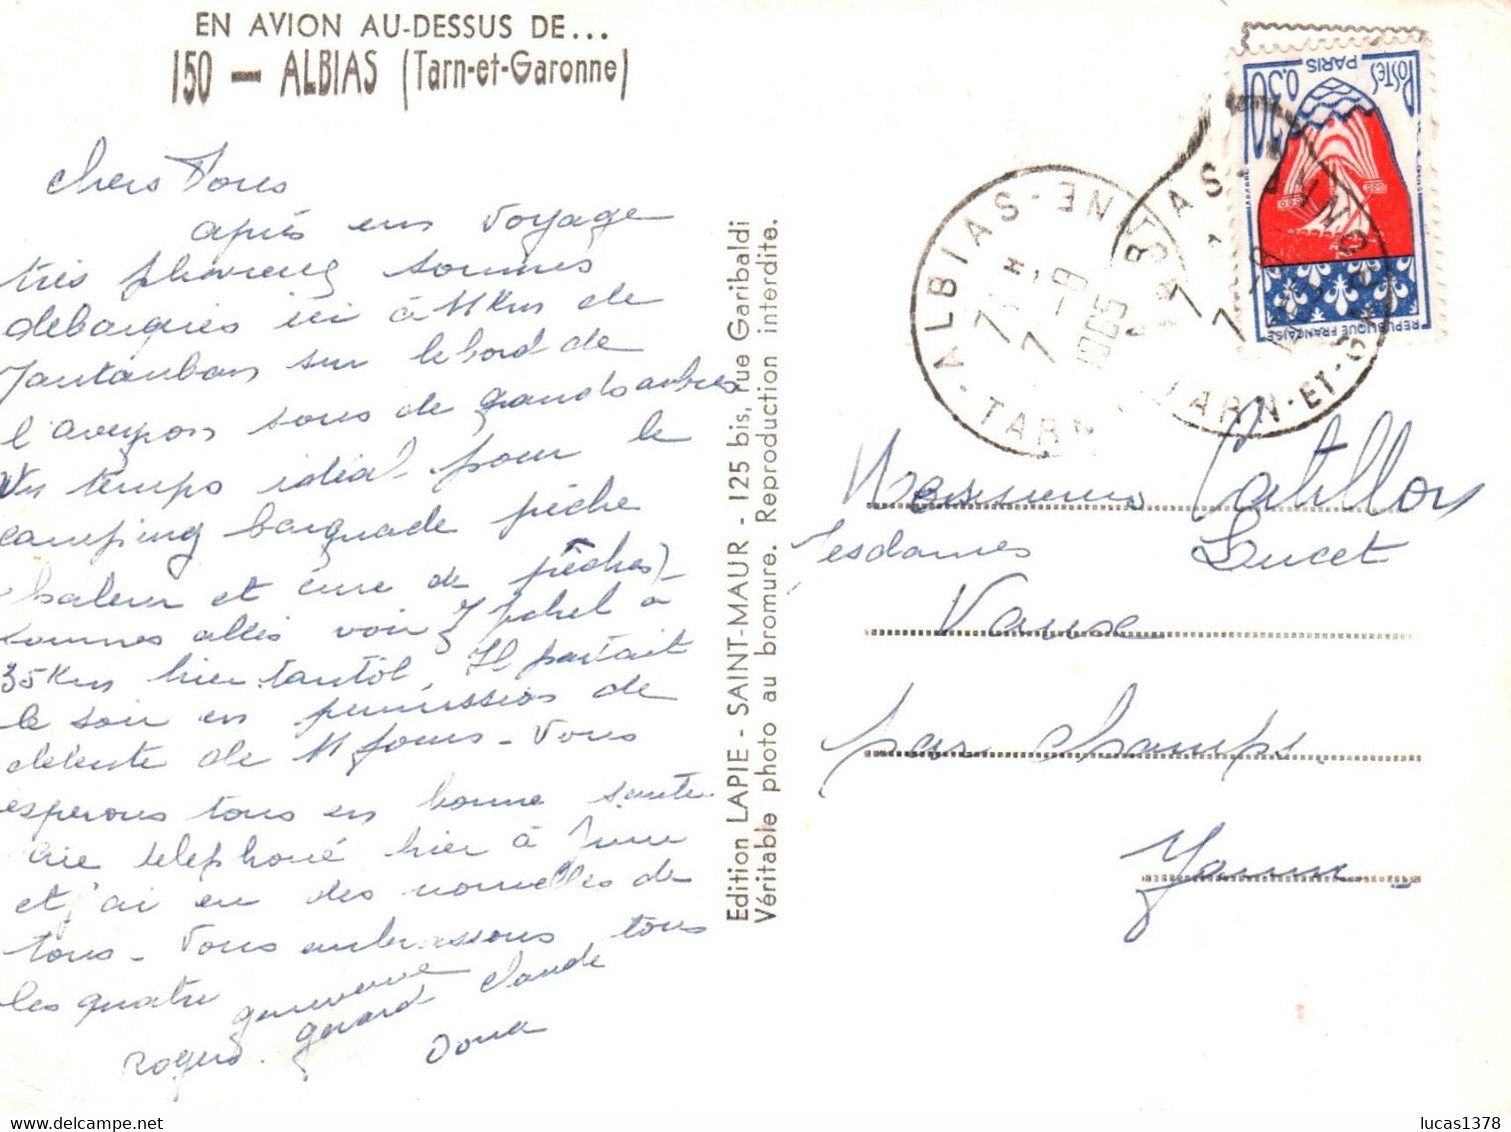 EN AVION AU-DESSUS DE...
150 — ALBIAS (Tarn-et-Garonne)
chers Tous
après un voyage
très sommes
debarqués ici à 11 Km de
Montauban sur le bord de
l'aveyron sous de grands arbres
Un temps idéal pour le
camping baignade pêche
et cure de pêches)
sommes allés voir Michel à
35 Km hier tantôt. Il partait
le soir en permission de
détente de 11 jours - Vous
esperons tous en bonne santé
telephoné hier à
et j'ai eu des nouvelles de
tous - Vous embrassons tous
les quatre
genevieve Claude
Roger. gerard
Edition LAPIE - SAINT-MAUR - 125 bis, rue Garibaldi
Véritable photo au bromure. Reproduction interdite.
POSTES 0,30
PARIS
REPUBLIQUE FRANÇAISE
ALBIAS - NE
TARN
7 H
7 - 9
1965
TARN-ET-G
Messieurs Catillon
Mesdames Lucet
Vaux
par champs
Yonne
lucas1378